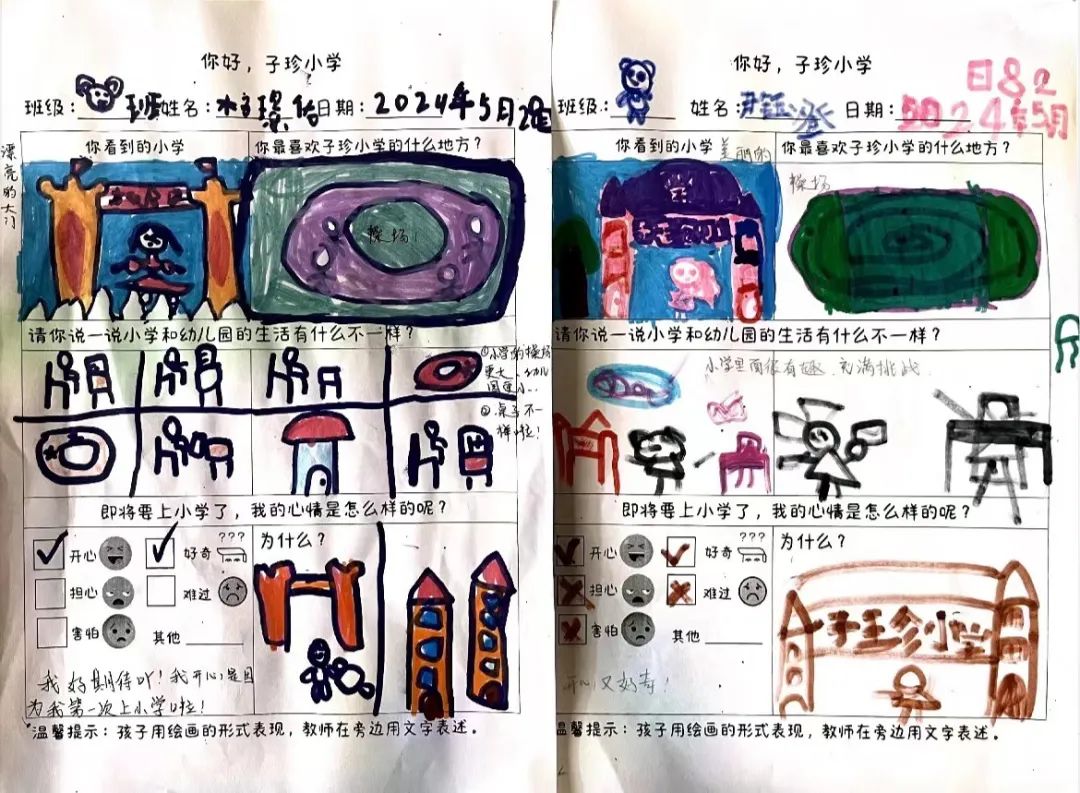 你好，子珍小学
班级： 班 姓名： 日期：2024年5月28日
漂亮的大门
你看到的小学
你最喜欢子珍小学的什么地方？
操场
请你说一说小学和幼儿园的生活有什么不一样？
①小学的操场
更大，幼儿
园更小…
②桌子不一
样啦！
即将要上小学了，我的心情是怎么样的呢？
开心
好奇 ???
担心
难过
害怕
其他
为什么？
我好期待吖！我开心是因
为我第一次上小学啦！
*温馨提示：孩子用绘画的形式表现，教师在旁边用文字表述。
你好，子珍小学
班级： 姓名： 日期：2024年5月
28日
你看到的小学 美丽的
你最喜欢子珍小学的什么地方？
操场
请你说一说小学和幼儿园的生活有什么不一样？
小学里面很有趣、充满挑战
即将要上小学了，我的心情是怎么样的呢？
开心
好奇 ???
担心
难过
害怕
其他
开心又好奇！
为什么？
子王珍小学
温馨提示：孩子用绘画的形式表现，教师在旁边用文字表述。